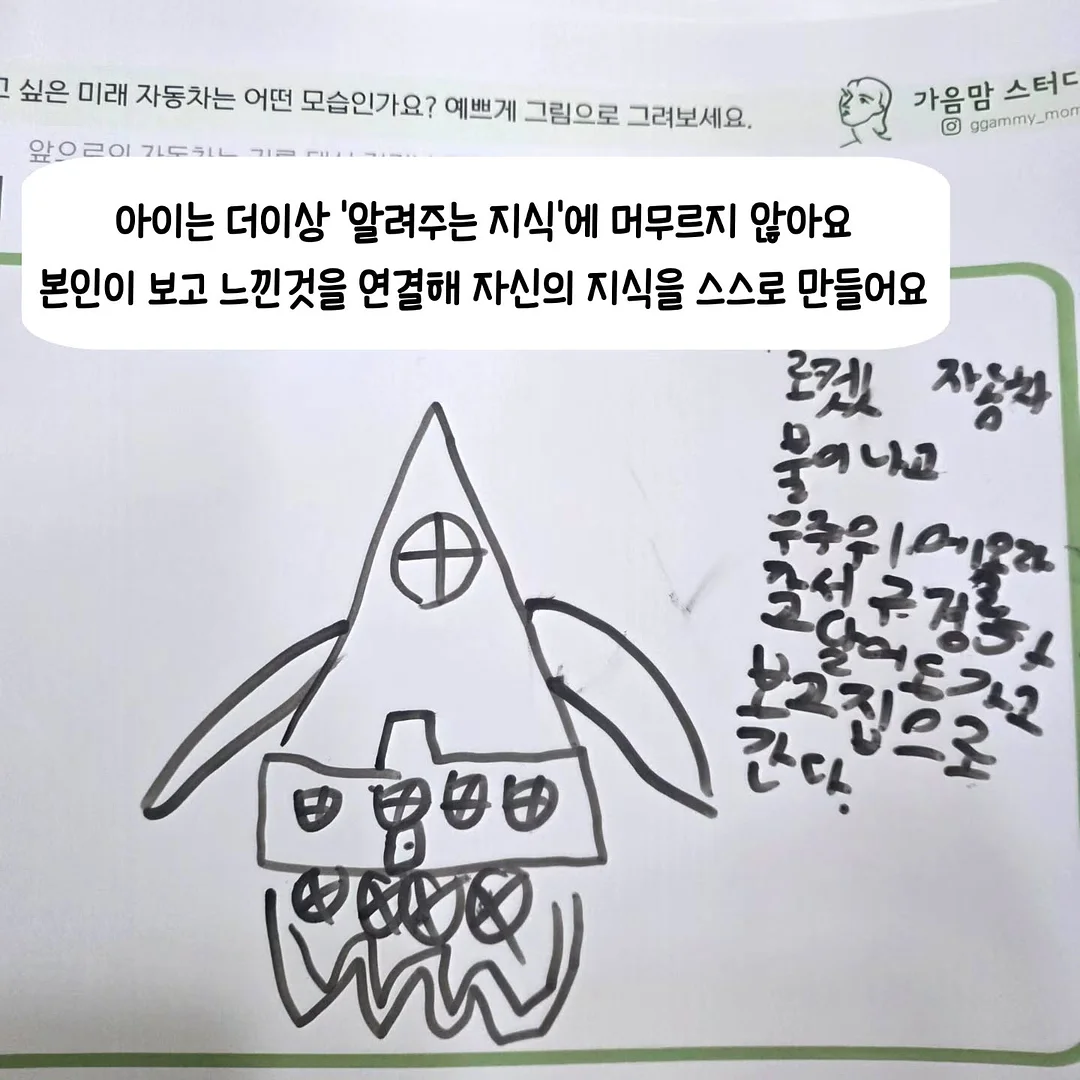 고 싶은 미래 자동차는 어떤 모습인가요? 예쁘게 그림으로 그려보세요.
가음맘 스터디
ggammy_mom
앞으로의 자동차는
아이는 더이상 '알려주는 지식'에 머무르지 않아요
본인이 보고 느낀것을 연결해 자신의 지식을 스스로 만들어요
로켓 자동차
물이 나고
우주위에 올라
서 구경을
달에도 가고
보고 집으로
간다.